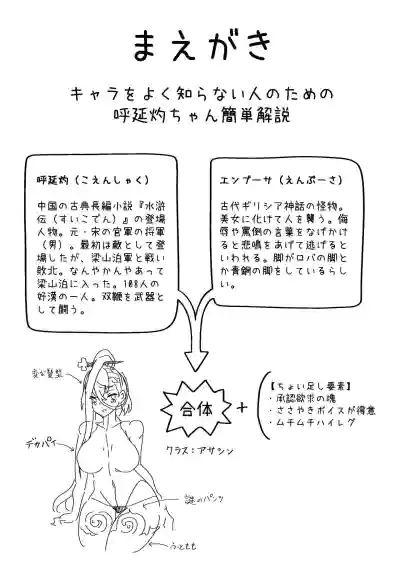 まえがき
キャラをよく知らない人のための
呼延灼ちゃん簡単解説
呼延灼（こえんしゃく）
中国の古典長編小説『水滸
伝（すいこでん）』の登場
人物。元・宋の官軍の将軍
（男）。最初は敵として登
場したが、梁山泊軍と戦い
敗北。なんやかんやあって
梁山泊に入った。108人の
好漢の一人。双鞭を武器と
して闘う。
エンプーサ（えんぷーさ）
古代ギリシア神話の怪物。
美女に化けて人を襲う。侮
辱や罵倒の言葉をなげかけ
ると悲鳴をあげて逃げると
いわれる。脚がロバの脚と
か青銅の脚をしているらし
い。
合体
+
【ちょい足し要素】
・承認欲求の塊
・ささやきボイスが得意
・ムチムチハイレグ
クラス：アサシン
デカパイ
謎のパンツ
ふともも